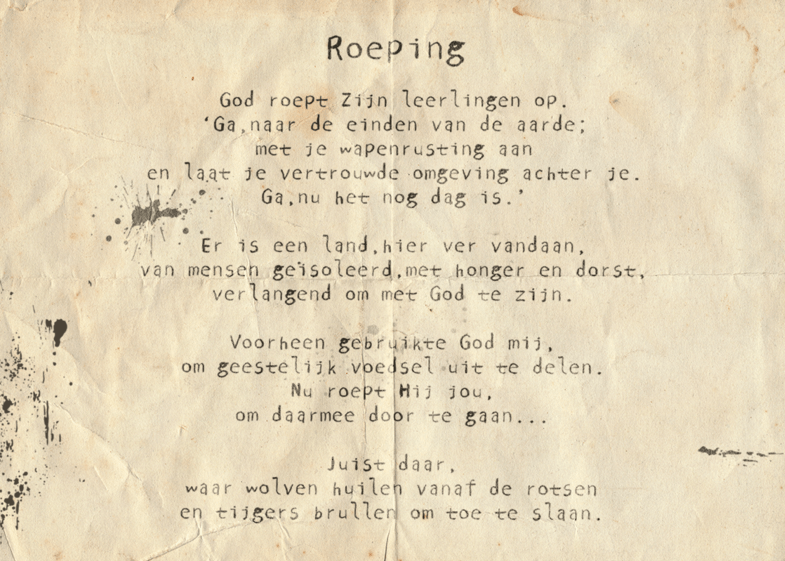 Roeping
God roept Zijn leerlingen op.
‘Ga,naar de einden van de aarde;
met je wapenrusting aan
en laat je vertrouwde omgeving achter je.
Ga,nu het nog dag is.’
Er is een land,hier ver vandaan,
van mensen geïsoleerd,met honger en dorst,
verlangend om met God te zijn.
Voorheen gebruikte God mij,
om geestelijk voedsel uit te delen.
Nu roept Hij jou,
om daarmee door te gaan...
Juist daar,
waar wolven huilen vanaf de rotsen
en tijgers brullen om toe te slaan.